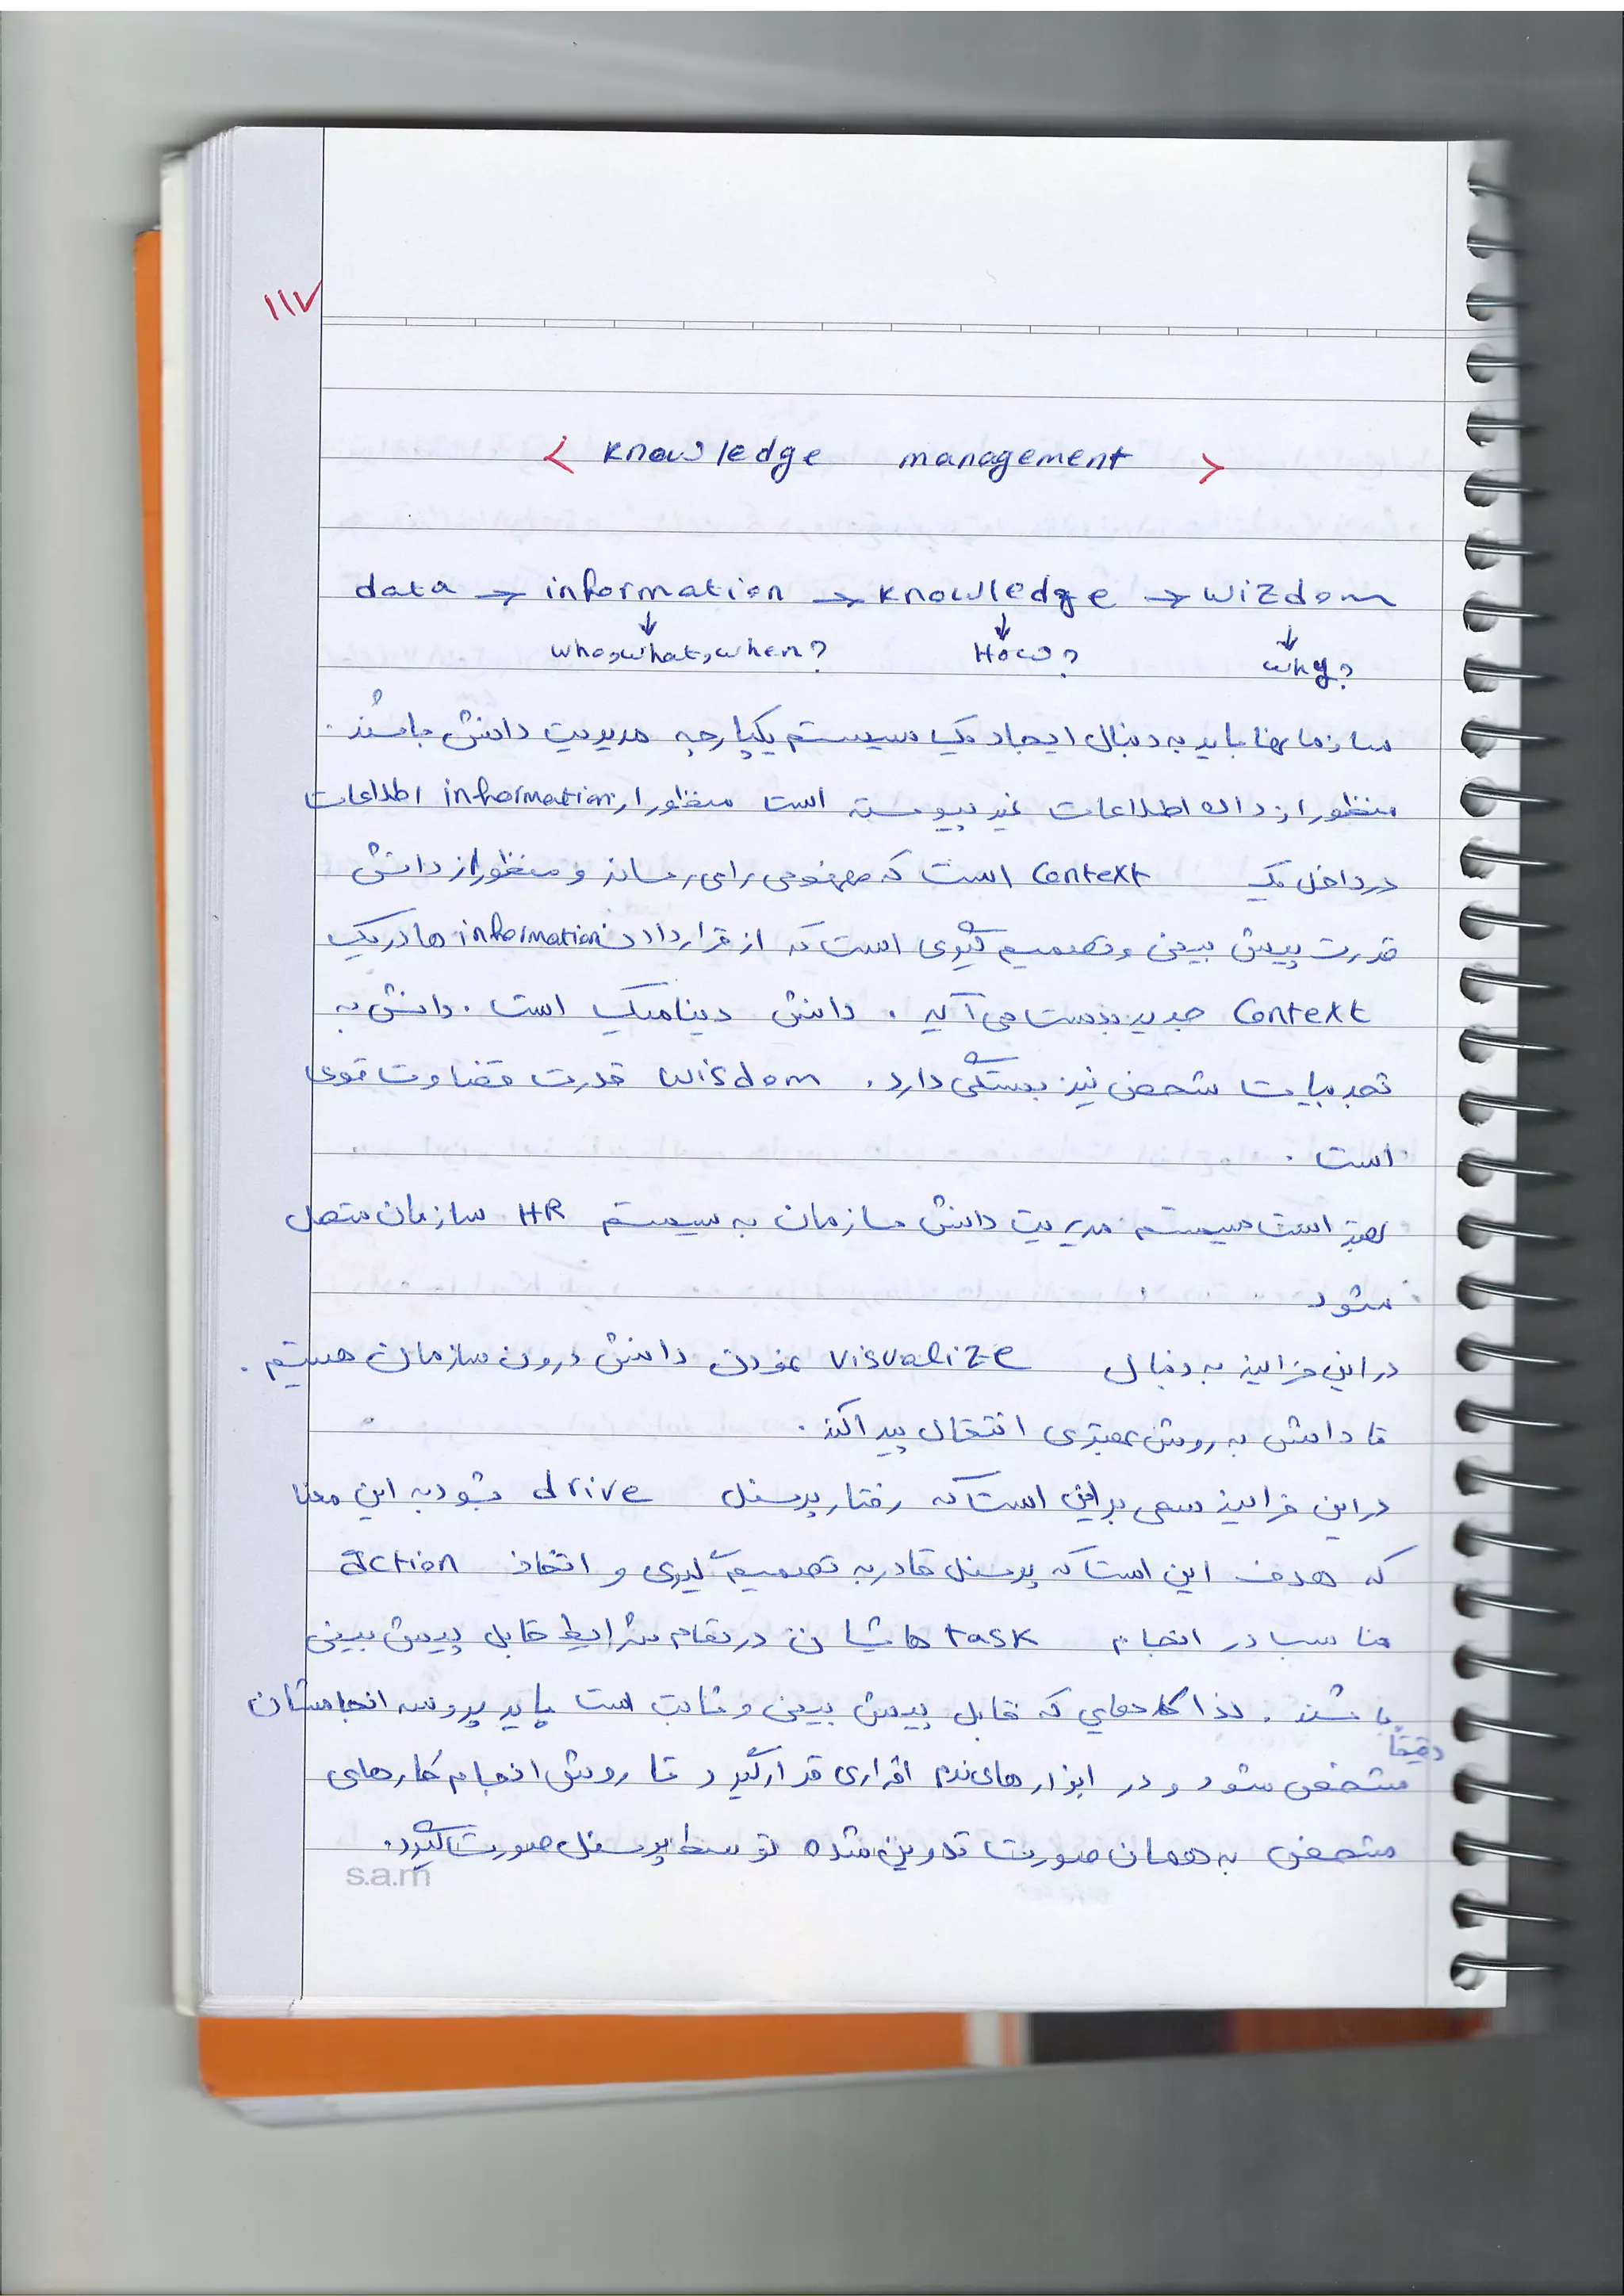 ۱۱۷
< knowledge management >
data → information → knowledge → wizdom
↓ ↓ ↓
who, what, when? How? why?
سازمانها باید به دنبال ایجاد یک سیستم یکپارچه مدیریت دانش باشند.
منظور از داده اطلاعات غیر پیوسته است منظور از information اطلاعات
در داخل یک context است که مفهومی را می رساند و منظور از دانش
قدرت پیش بینی و تصمیم گیری است که از قرار دادن information ها در یک
context جدید بدست می آید. دانش دینامیک است. دانش به
تجربیات شخص نیز بستگی دارد. wisdom قدرت قضاوت قوی
است.
بهتر است سیستم مدیریت دانش سازمان به سیستم HR سازمان متصل
شود.
در این فرایند به دنبال visualize نمودن دانش درون سازمان هستیم.
تا دانش به روش بهتری انتقال پیدا کند.
در این فرایند سعی بر این است که رفتار پرسنل drive شود به این معنا
که هدف این است که پرسنل قادر به تصمیم گیری و اتخاذ action
مناسب در انجام task هایشان در تمام شرایط قابل پیش بینی
باشند. لذا کارهایی که قابل پیش بینی و ثابت است باید پروسه انجامشان
دقیقاً
مشخص شود و در ابزارهای نرم افزاری قرار گیرد تا روش انجام کارهای
مشخص به همان صورت تدوین شده توسط پرسنل صورت گیرد.
s.a.m